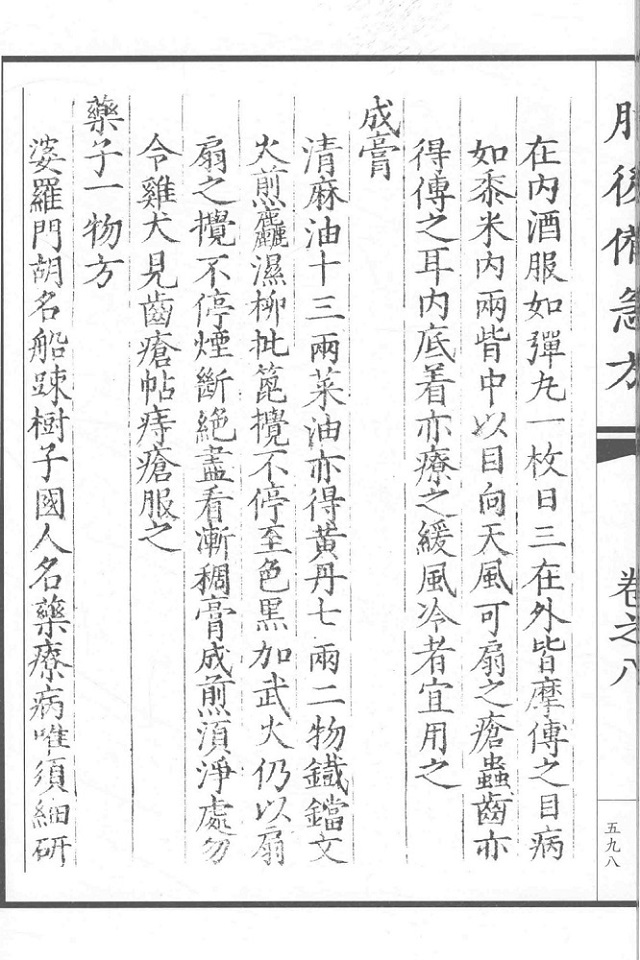 肘後備急方
卷之八
五九八
在內酒服如彈丸一枚日三在外皆摩傅之目病
如黍米內兩眥中以目向天風可扇之瘡蟲齒亦
得傅之耳內底着亦療之緩風冷者宜用之
成膏
清麻油十三兩菜油亦得黃丹七兩二物鐵鐺文
火煎麤濕柳批篦攪不停至色黑加武火仍以扇
扇之攪不停煙斷絕盡看漸稠膏成煎須淨處勿
令雞犬見齒瘡帖痔瘡服之
藥子一物方
婆羅門胡名船疎樹子國人名藥療病唯須細研